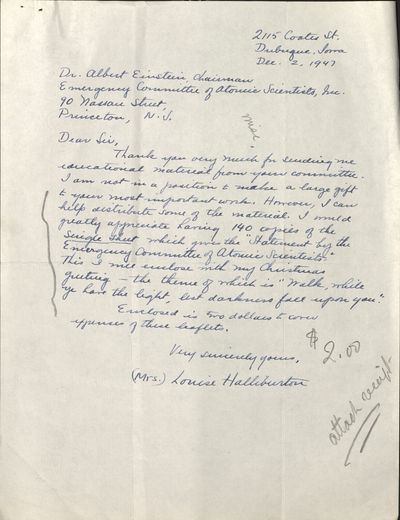 2115 Coates St.
Dubuque, Iowa
Dec. 2, 1947
Dr. Albert Einstein, Chairman
Emergency Committee of Atomic Scientists, Inc.
90 Nassau Street,
Princeton, N.J.
misc.
Dear Sir,
Thank you very much for sending me
educational material from your committee.
I am not in a position to make a large gift
to your most important work. However, I can
help distribute some of the material. I would
greatly appreciate having 140 copies of the
single sheet which gives the "Statement by the
Emergency Committee of Atomic Scientists."
This I will enclose with my Christmas
greeting - the theme of which is "Walk, while
ye have the light, lest darkness fall upon you".
Enclosed is two dollars to cover
expenses of these leaflets.
$2.00
Very sincerely yours,
(Mrs.) Louise Halliburton
attach receipt